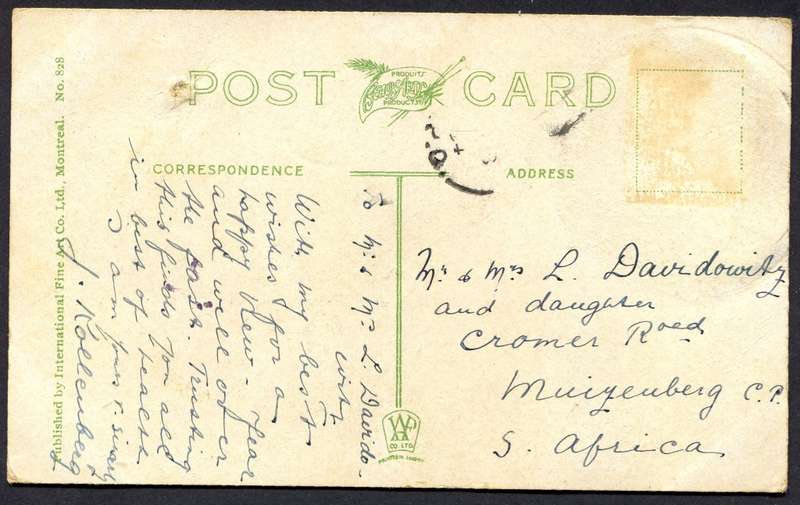 POST CARD
PRODUITS
PRODUCTS
CORRESPONDENCE
ADDRESS
Published by International Fine Art Co. Ltd., Montreal. No. 828
To Mr & Mrs L Davido-
witz
With my best
wishes for a
happy New-Year
and well over
the fast. Trusting
this finds you all
in best of health
I am yours v. sincerely
J. Kollenberg
Mr & Mrs L. Davidowitz
and daughter
Cromer Road
Muizenberg C.P.
S. Africa
CO. LTD.